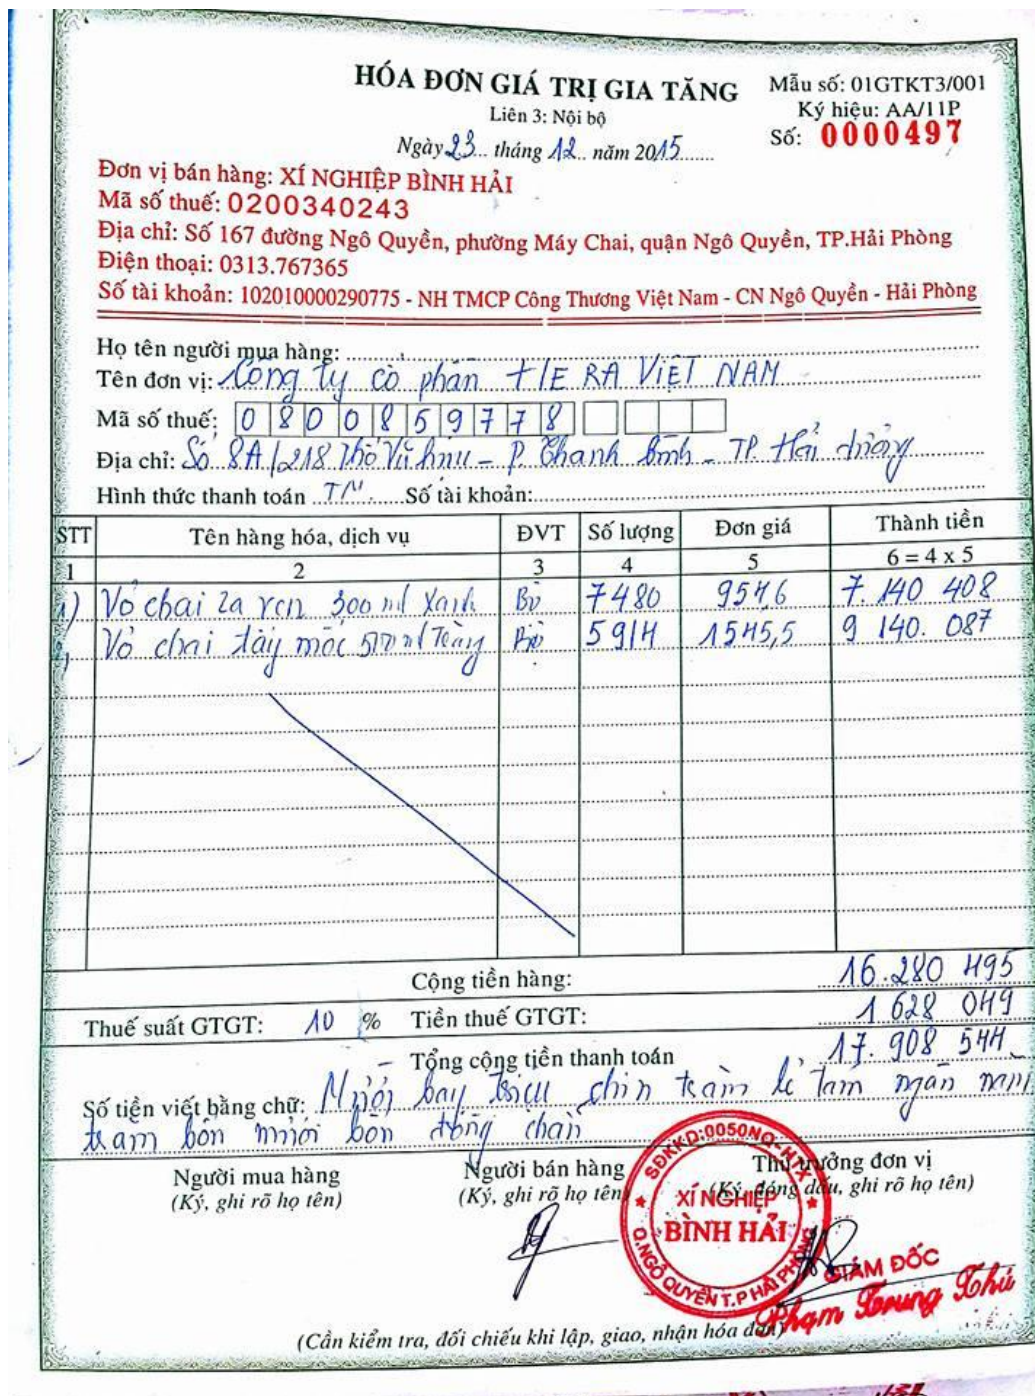 HÓA ĐƠN GIÁ TRỊ GIA TĂNG
Mẫu số: 01GTKT3/001
Liên 3: Nội bộ
Ký hiệu: AA/11P
Số: 0000497
Ngày 23 tháng 12 năm 2015
Đơn vị bán hàng: XÍ NGHIỆP BÌNH HẢI
Mã số thuế: 0200340243
Địa chỉ: Số 167 đường Ngô Quyền, phường Máy Chai, quận Ngô Quyền, TP.Hải Phòng
Điện thoại: 0313.767365
Số tài khoản: 102010000290775 - NH TMCP Công Thương Việt Nam - CN Ngô Quyền - Hải Phòng
Họ tên người mua hàng:
Tên đơn vị: Công ty cổ phần TIE RA VIỆT NAM
Mã số thuế: 0800859778
Địa chỉ: Số 8A/218 Phố Vũ hựu - P. Thanh bình - TP Hải dương
Hình thức thanh toán TM Số tài khoản:
STT Tên hàng hóa, dịch vụ ĐVT Số lượng Đơn giá Thành tiền
1 2 3 4 5 6 = 4 x 5
1) Vỏ chai 300 ml Xanh Bộ 7480 954,6 7.140 408
2, Vỏ chai đáy 500 ml Trắng Bộ 5914 1545,5 9 140. 087
Cộng tiền hàng: 16.280 495
Thuế suất GTGT: 10 % Tiền thuế GTGT: 1 628 049
Tổng cộng tiền thanh toán 17. 908 544
Số tiền viết bằng chữ: Mười bảy triệu chín trăm lẻ tám ngàn năm
trăm bốn mươi bốn đồng chẵn
Người mua hàng
(Ký, ghi rõ họ tên)
Người bán hàng
(Ký, ghi rõ họ tên)
Thủ trưởng đơn vị
(Ký, đóng dấu, ghi rõ họ tên)
SĐKKD:0050NQ-HTX
XÍ NGHIỆP
BÌNH HẢI
Q.NGÔ QUYỀN T.P HẢI PHÒNG
GIÁM ĐỐC
Phạm Trung Thú
(Cần kiểm tra, đối chiếu khi lập, giao, nhận hóa đơn)